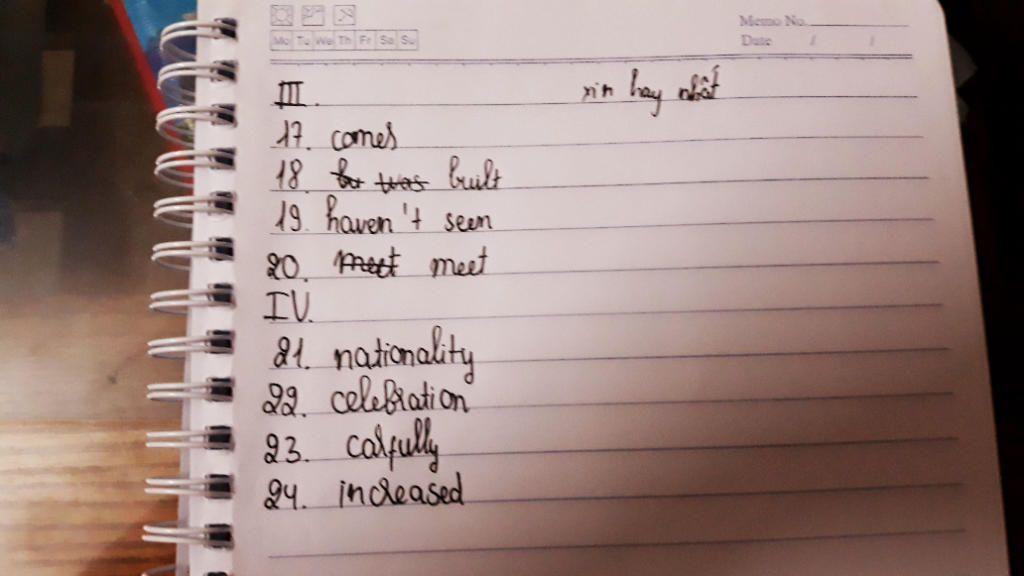 Mo Tu We Th Fr Sa Su
Memo No.
Date / /
III. xin hay nhất
17. comes
18. built
19. haven't seen
20. meet meet
IV.
21. nationality
22. celebration
23. carfully
24. increased